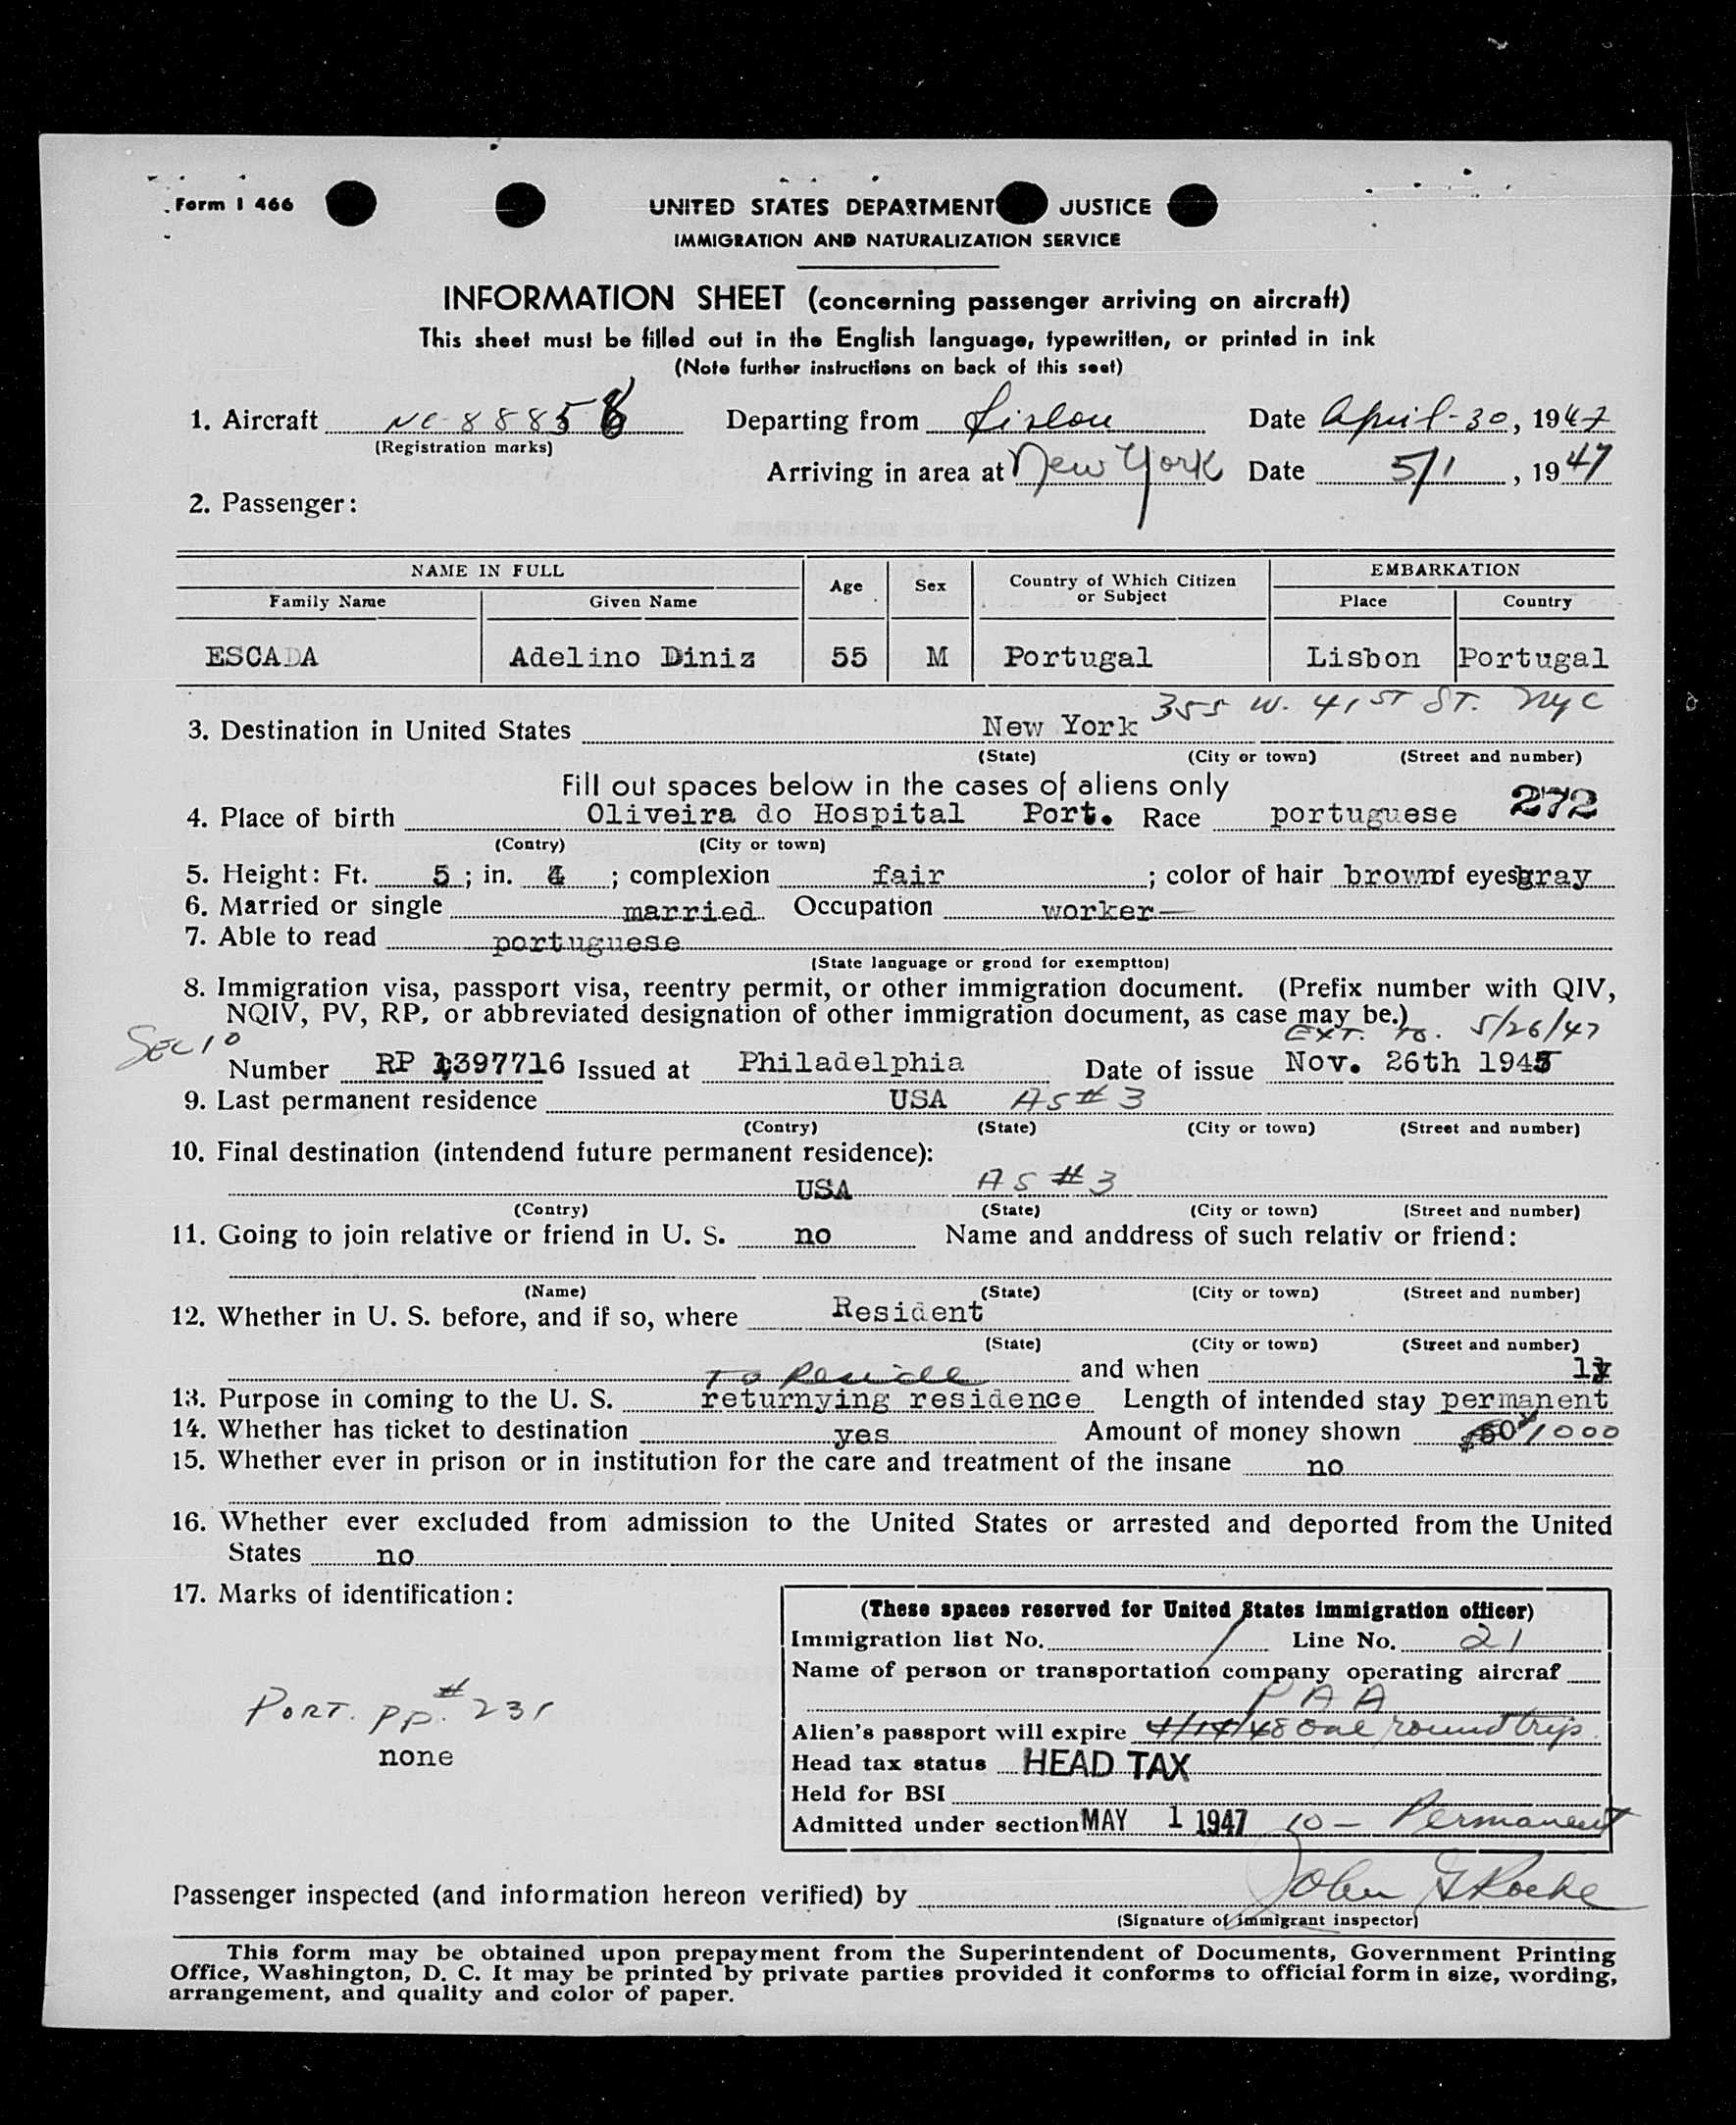 Form I 466
UNITED STATES DEPARTMENT JUSTICE
IMMIGRATION AND NATURALIZATION SERVICE
INFORMATION SHEET (concerning passenger arriving on aircraft)
This sheet must be filled out in the English language, typewritten, or printed in ink
(Note further instructions on back of this seet)
1. Aircraft NC-88858 Departing from Lisbon Date April-30, 1947
(Registration marks)
Arriving in area at New York Date 5/1, 1947
2. Passenger:
NAME IN FULL Age Sex Country of Which Citizen or Subject EMBARKATION
Family Name Given Name Place Country
ESCADA Adelino Diniz 55 M Portugal Lisbon Portugal
355 W. 41ST ST. NYC
3. Destination in United States New York
(State) (City or town) (Street and number)
Fill out spaces below in the cases of aliens only
4. Place of birth Oliveira do Hospital Port. Race portuguese 272
(Contry) (City or town)
5. Height: Ft. 5; in. 4; complexion fair; color of hair brown of eyes gray
6. Married or single married Occupation worker—
7. Able to read portuguese
(State language or grond for exemptton)
8. Immigration visa, passport visa, reentry permit, or other immigration document. (Prefix number with QIV,
NQIV, PV, RP, or abbreviated designation of other immigration document, as case may be.)
SEC 10 EXT. TO. 5/26/47
Number RP 1397716 Issued at Philadelphia Date of issue Nov. 26th 1945
9. Last permanent residence USA AS # 3
(Contry) (State) (City or town) (Street and number)
10. Final destination (intendend future permanent residence):
USA AS # 3
(Contry) (State) (City or town) (Street and number)
11. Going to join relative or friend in U. S. no Name and anddress of such relativ or friend:
(Name) (State) (City or town) (Street and number)
12. Whether in U. S. before, and if so, where Resident
(State) (City or town) (Street and number)
To Reside and when
13. Purpose in coming to the U. S. returnying residence Length of intended stay permanent
14. Whether has ticket to destination yes Amount of money shown $50 1000
15. Whether ever in prison or in institution for the care and treatment of the insane no
16. Whether ever excluded from admission to the United States or arrested and deported from the United
States no
17. Marks of identification:
PORT. PP. # 231
none
(These spaces reserved for United States immigration officer)
Immigration list No. 1 Line No. 21
Name of person or transportation company operating aircraf
PAA
Alien's passport will expire 4/14/48 One round trip.
Head tax status HEAD TAX
Held for BSI
Admitted under section MAY 1 1947 10 - Permanent
Passenger inspected (and information hereon verified) by John G Roche
(Signature of immigrant inspector)
This form may be obtained upon prepayment from the Superintendent of Documents, Government Printing
Office, Washington, D. C. It may be printed by private parties provided it conforms to official form in size, wording,
arrangement, and quality and color of paper.